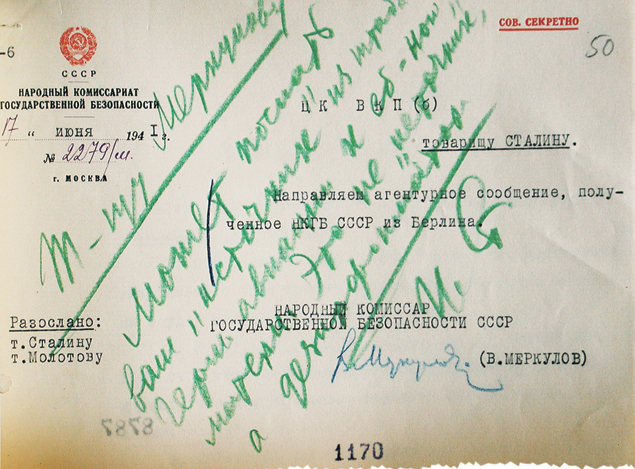 -6
СОВ. СЕКРЕТНО
50
СССР
НАРОДНЫЙ КОМИССАРИАТ
ГОСУДАРСТВЕННОЙ БЕЗОПАСНОСТИ
17 " июня 1941 г.
№ 2279/м.
г. МОСКВА
ЦК ВКП (б)
товарищу СТАЛИНУ.
Направляем агентурное сообщение, полу-
ченное НКГБ СССР из Берлина.
НАРОДНЫЙ КОМИССАР
ГОСУДАРСТВЕННОЙ БЕЗОПАСНОСТИ СССР
(В.МЕРКУЛОВ)
Разослано:
т.Сталину
т.Молотову
1170
Т-щу Меркулову
Может послать
ваш "источник" из штаба
герм. авиации к еб-ной
матери. Это не "источник",
а дезинформатор.
И. Ст